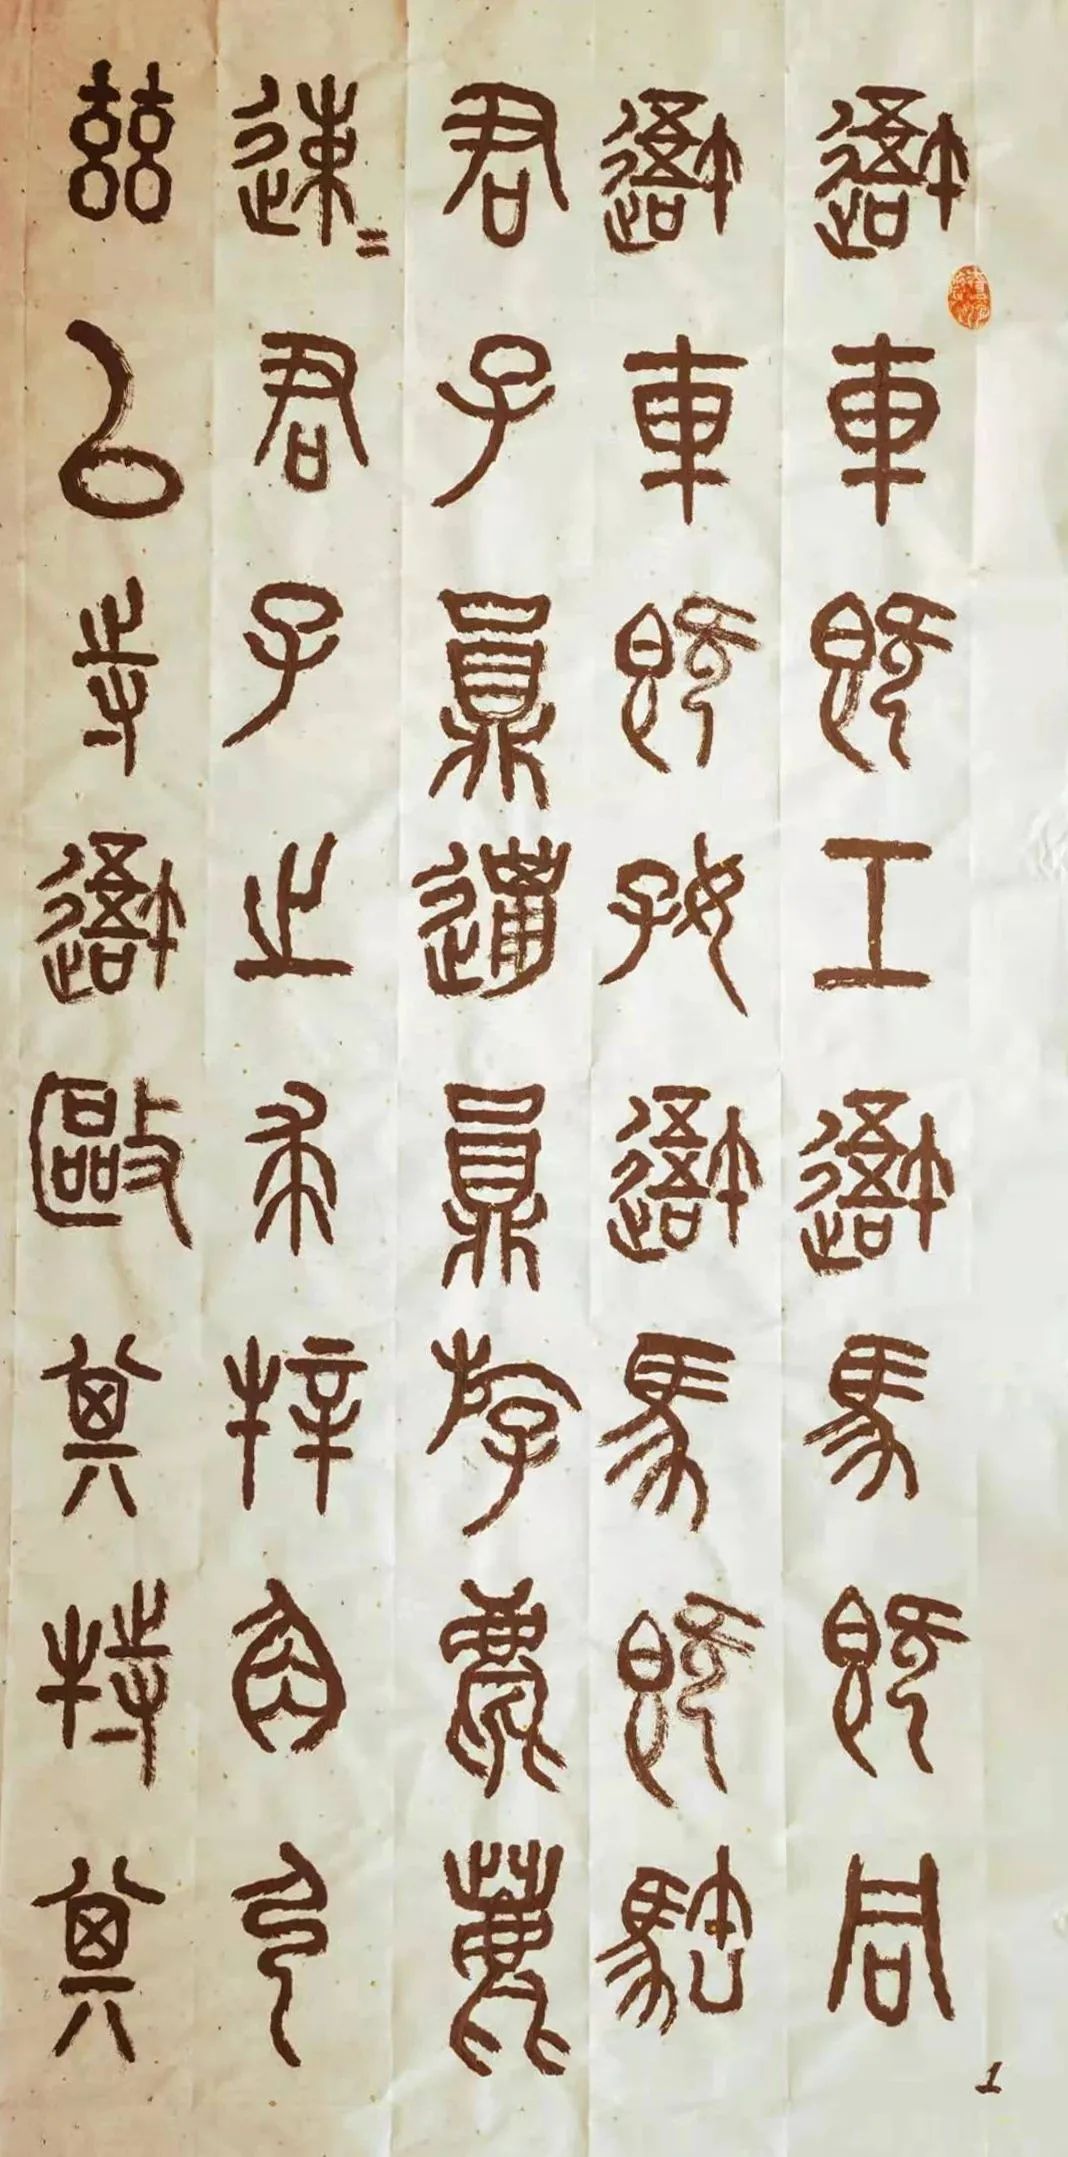 吾車既工吾馬既同
吾車既好吾馬既𩣡
君子員邋員斿麀鹿
速=君子之求㸬角弓
茲以寺吾敺其特其
1